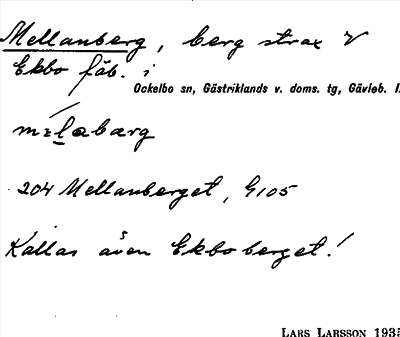 Mellanberg, berg strax V
Ekbo fäb. i
Ockelbo sn, Gästriklands v. doms. tg, Gävleb. l.
204 Mellanberget, G105
Kallas även Ekboberget!
LARS LARSSON 1935